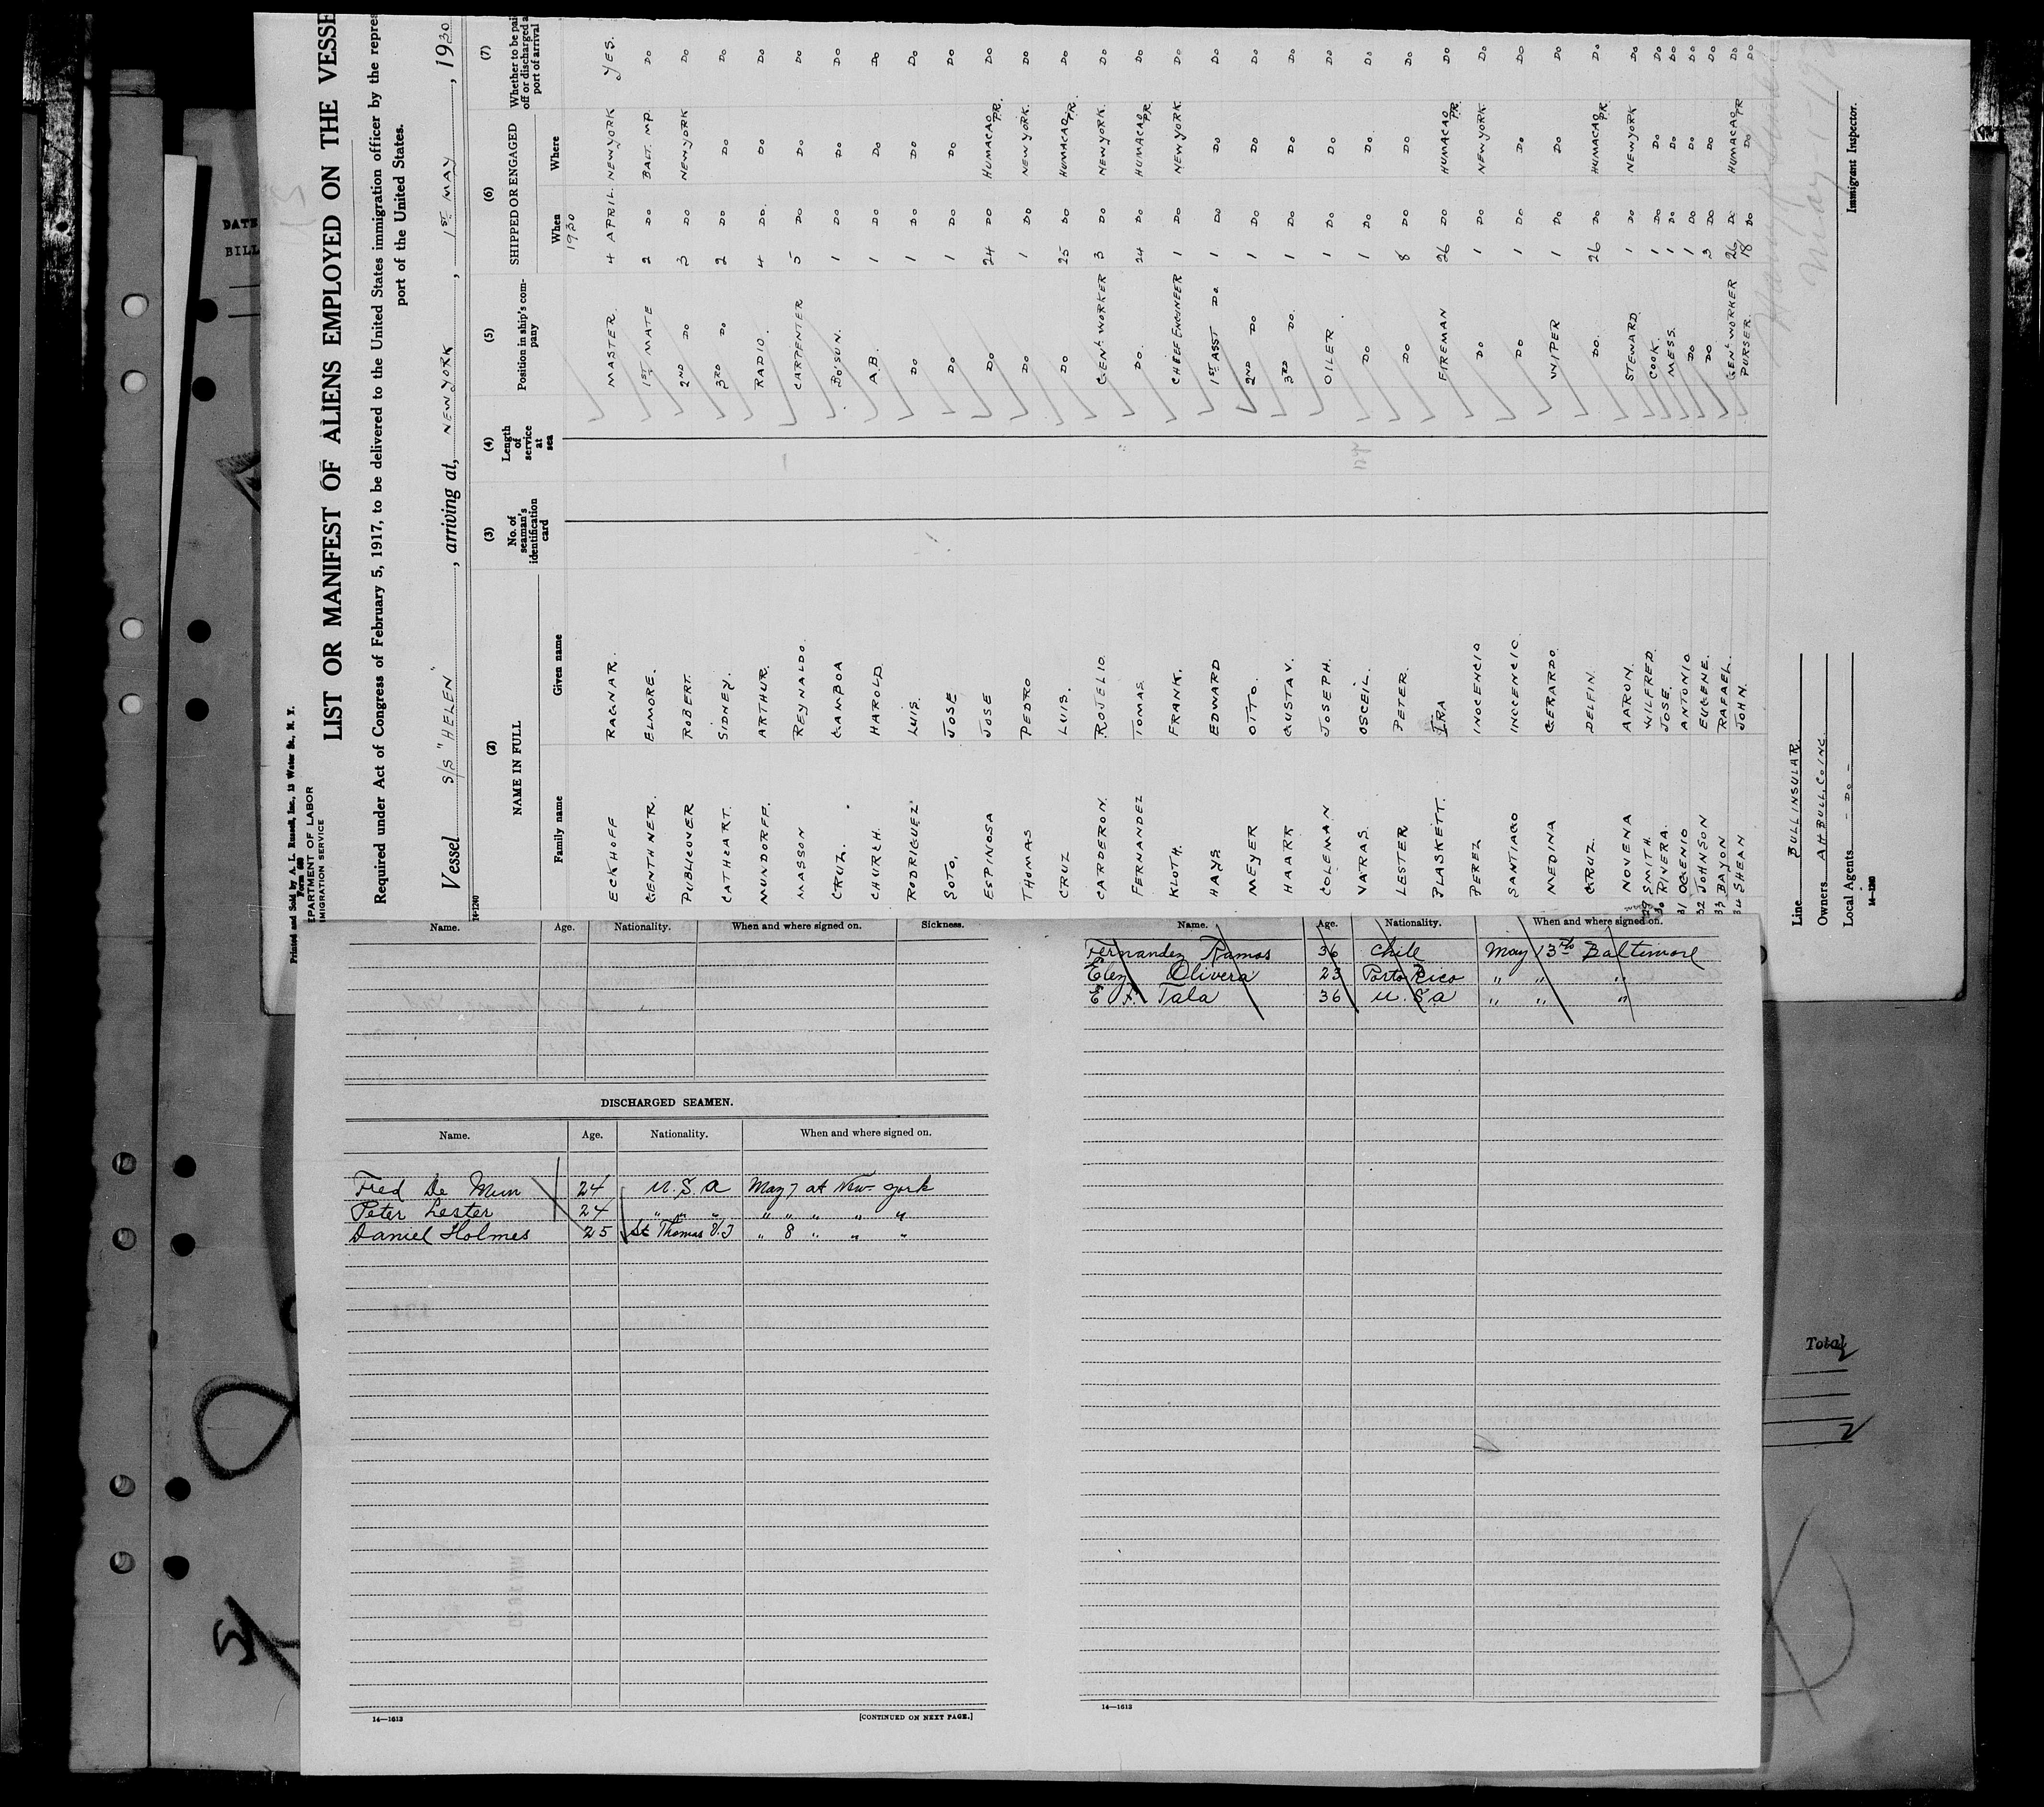 Printed and Sold by A. L. Russell, Inc., 13 Water St., N. Y.
Form 680
EPARTMENT OF LABOR
MIGRATION SERVICE
LIST OR MANIFEST OF ALIENS EMPLOYED ON THE VESSE
Required under Act of Congress of February 5, 1917, to be delivered to the United States immigration officer by the repres
port of the United States.
Vessel S/S "HELEN", arriving at, NEW YORK, 1ST MAY, 1930
14-1240
(2) (3) (4) (5) (6) (7)
NAME IN FULL No. of seaman's identification card Length of service at sea Position in ship's company SHIPPED OR ENGAGED Whether to be pai off or discharged a port of arrival
Family name Given name When Where
1930
ECKHOFF RAGNAR. MASTER. 4 APRIL. NEW YORK YES.
GENTHNER. ELMORE. 1ST MATE 2 DO BALT. MD. DO
PUBLICOVER ROBERT. 2ND DO 3 DO NEW YORK DO
CATHCART. SIDNEY. 3RD DO 2 DO DO DO
MUNDORFF. ARTHUR. RADIO. 4 DO. DO DO
MASSON REYNALDO. CARPENTER 5 DO DO DO
CRUZ. GAMBOA BO'SUN. 1 DO DO DO
CHURCH. HAROLD A.B. 1 DO DO DO
RODRIGUEZ LUIS. DO 1 DO DO DO
SOTO, JOSE DO 1 DO DO DO
ESPINOSA JOSE DO 24 DO HUMACAO P.R. DO
THOMAS PEDRO DO 1 DO NEW YORK. DO
CRUZ LUIS. DO 25 DO HUMACAO P.R. DO
CARDERON. ROJELIO GENL WORKER 3 DO NEW YORK. DO
FERNANDEZ TOMAS. DO. 24 DO HUMACAO P.R. DO
KLOTH. FRANK. CHIEF ENGINEER 1 DO NEW YORK. DO
HAYS EDWARD 1ST ASST DO. 1 DO DO DO
MEYER OTTO. 2ND DO 1 DO DO DO
HAARR GUSTAV. 3RD DO. 1 DO DO DO
COLEMAN JOSEPH. OILER. 1 DO DO DO
VATRAS. OSCEIL. DO 1 DO DO. DO
LESTER PETER. DO 8 DO DO DO
PLASKETT. IRA FIREMAN 26 DO HUMACAO P.R. DO
PEREZ INOCENCIO DO 1 DO NEW YORK. DO
SANTIAGO INOCENCIO. DO 1 DO DO DO
MEDINA GERARDO. WIPER 1 DO DO DO
CRUZ. DELFIN. DO. 26 DO HUMACAO P.R. DO
NOVENA AARON. STEWARD. 1 DO NEW YORK DO
29 SMITH. WILFRED. COOK. 1 DO DO DO
30 RIVERA. JOSE. MESS. 1 DO DO DO
31 OGENIO ANTONIO DO 1 DO DO DO
32 JOHNSON EUGENE. DO 3 DO DO DO
33 BAYON RAFAEL. GENL WORKER 26 DO HUMACAO PR DO
34 SHEAN JOHN. PURSER. 18 DO DO DO
May-1-193
Line BULL INSULAR.
Owners AH BULL, CO INC.
Local Agents - DO -
14-1240
Immigrant Inspector.
DATE
BILL
Name. Age. Nationality. When and where signed on. Sickness.
DISCHARGED SEAMEN.
Name. Age. Nationality. When and where signed on.
Fred De Mun 24 U.S.A May 7 at New York
Peter Lester 24 " " " " " " " "
Daniel Holmes 25 St Thomas V.I " 8 " " "
14—1613
[CONTINUED ON NEXT PAGE.]
Name. Age. Nationality. When and where signed on.
Fernandez Ramos 36 Chile May 13th Baltimore
Eley Olivera 23 Porto Rico " " "
E F. Tala 36 U.S.A " " "
14—1613
Total